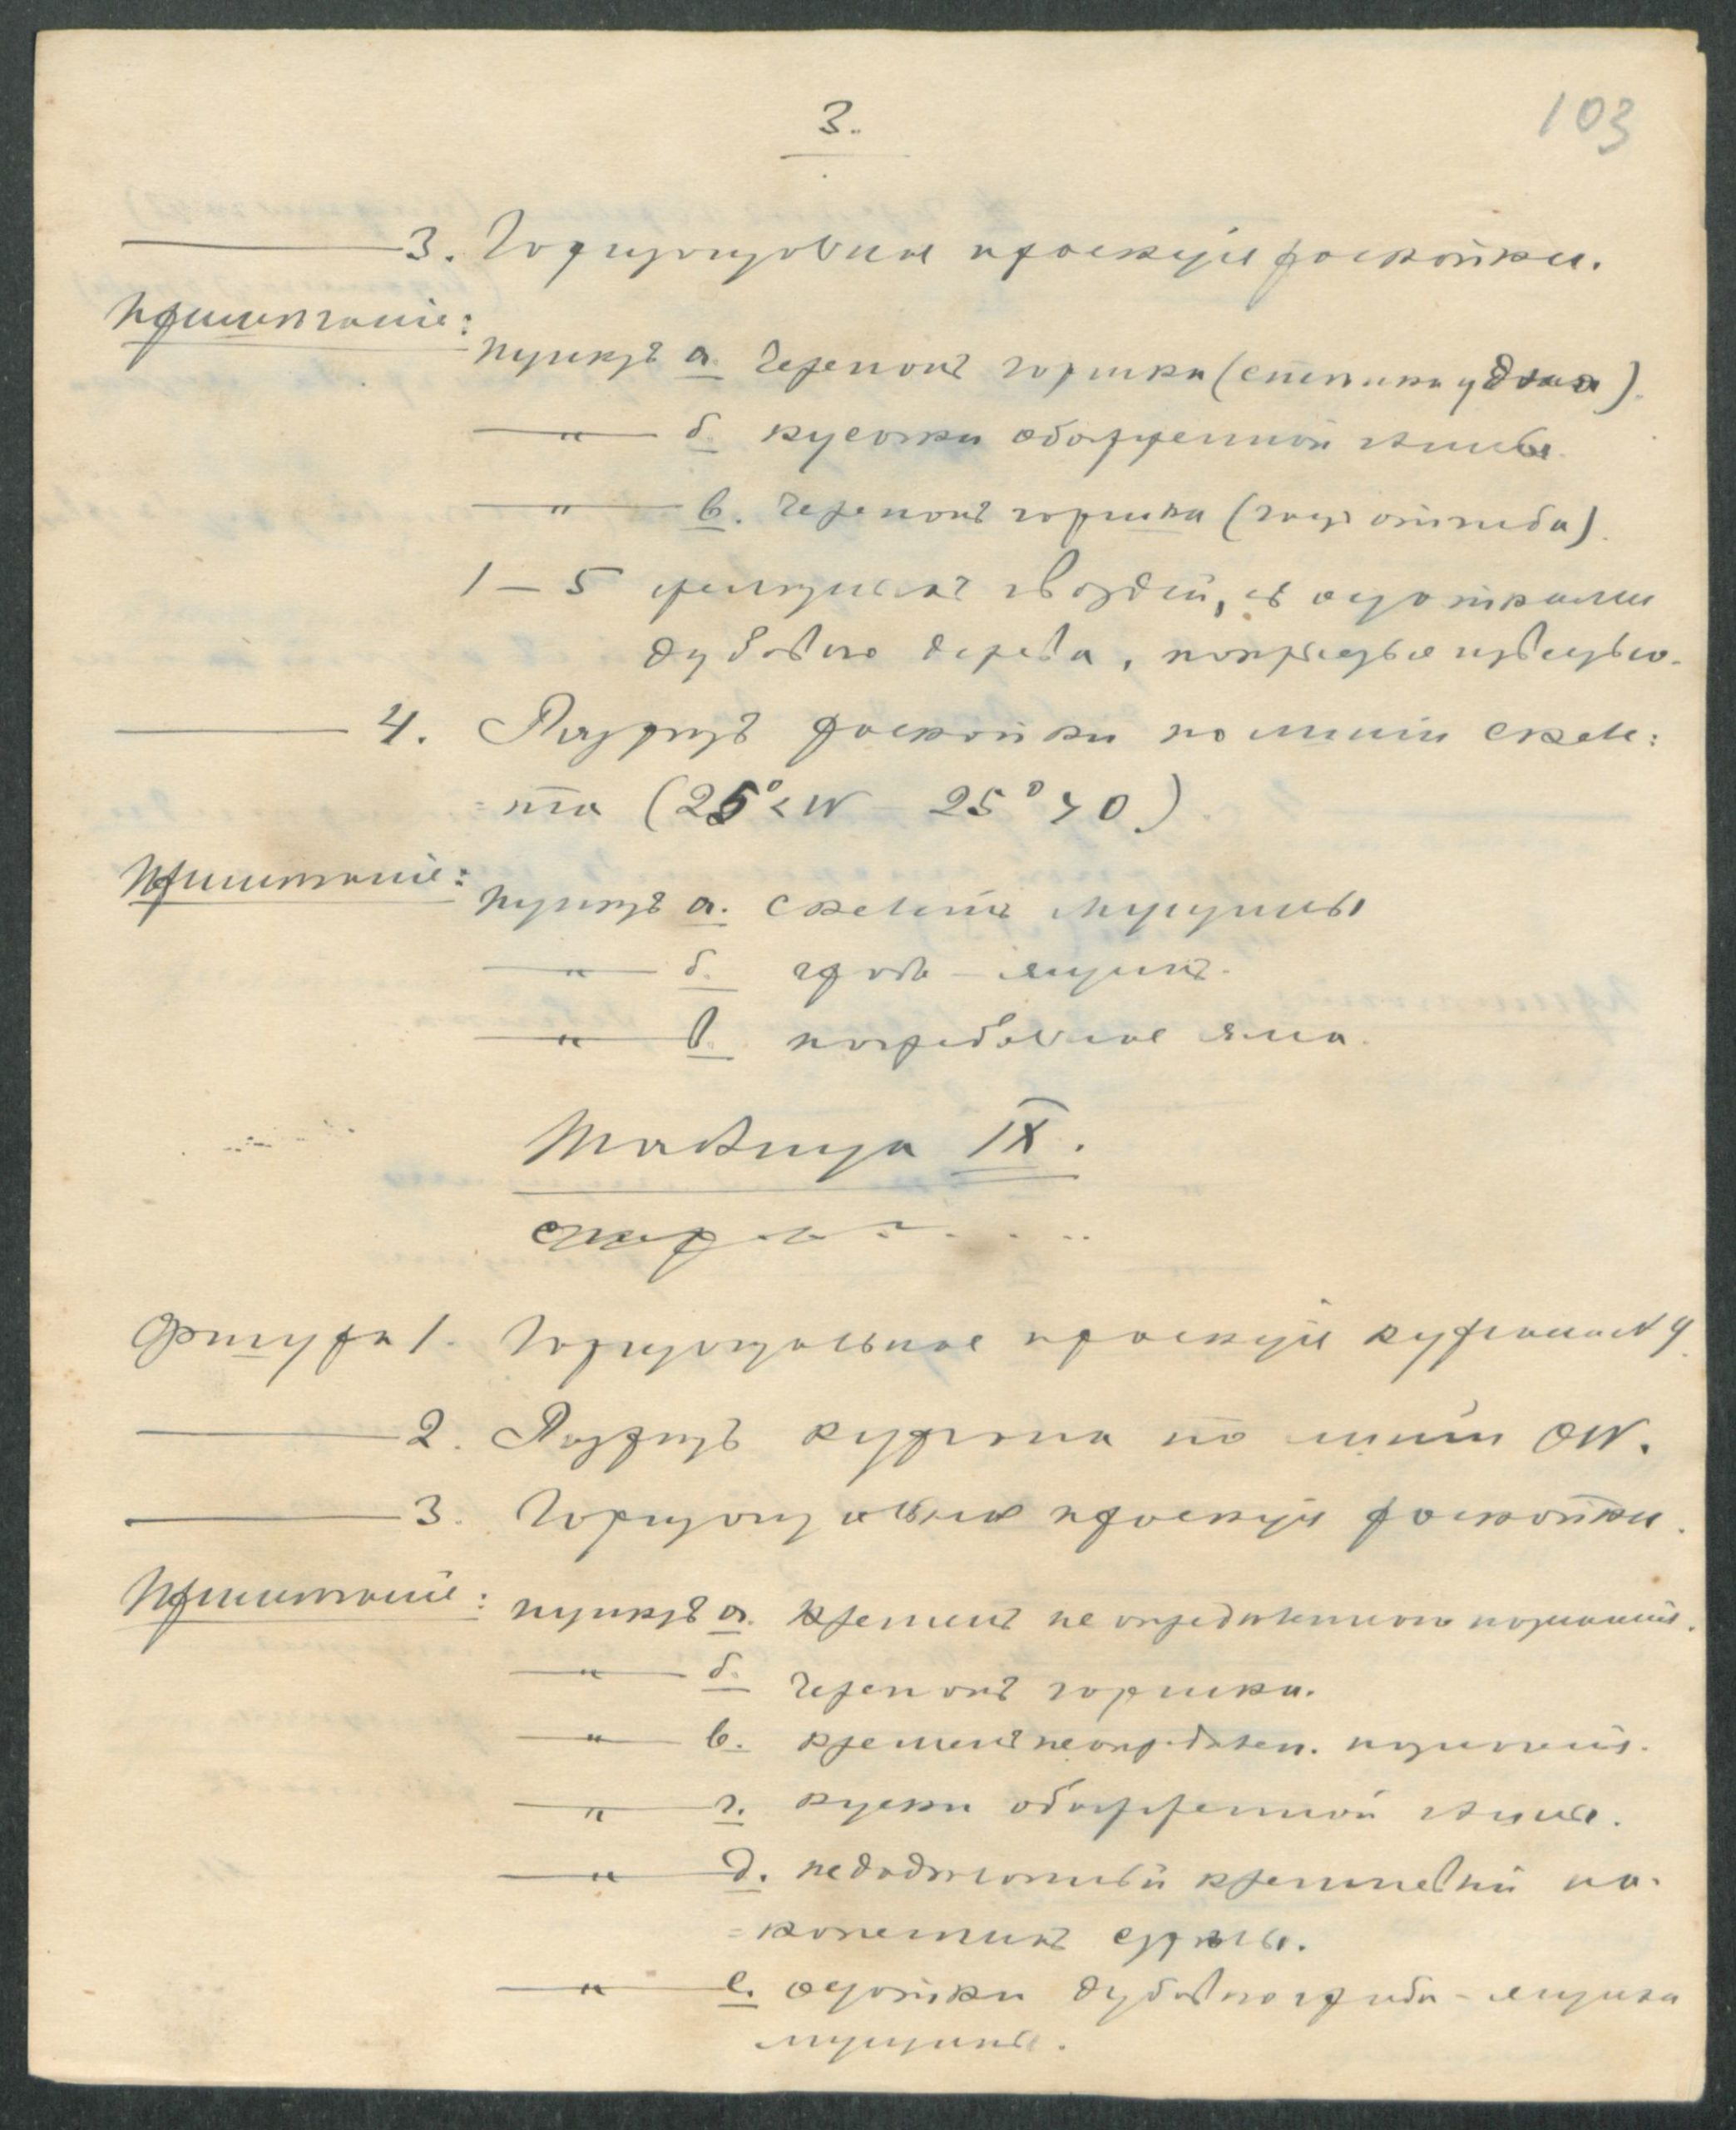 3.
103
——— 3. Горизонтальная проекція раскопки.
Примѣчаніе:
пунктъ а. Черепокъ горшка (стѣнка у дна).
—„— б. кусочки обожженной глины.
—„— в. Черепокъ горшка (часть отгиба).
1 – 5 желѣзныхъ гвоздей, съ остатками
дубоваго дерева, покрытые известью.
——— 4. Разрѣзъ раскопки по линіи скеле:
=та (25° < W – 25° > O).
Примѣчаніе:
пунктъ а. Скелетъ мущины
—„— б. гробъ – ящикъ.
—„— в. погребальная яма.
Таблица IX.
Фигура 1. Горизонтальная проекція кургана № 9.
——— 2. Разрѣзъ кургана по линіи OW.
——— 3. Горизонтальная проекція раскопки.
Примѣчаніе:
пунктъ а. Кремень неопредѣленнаго названія.
—„— б. Черепокъ горшка.
—„— в. кремень неопредѣлен. названія.
—„— г. куски обожженной глины.
—„— д. недодѣланный кремневый на-
=конечникъ стрѣлы.
—„— е. остатки дубоваго гроба – ящика
мущины.